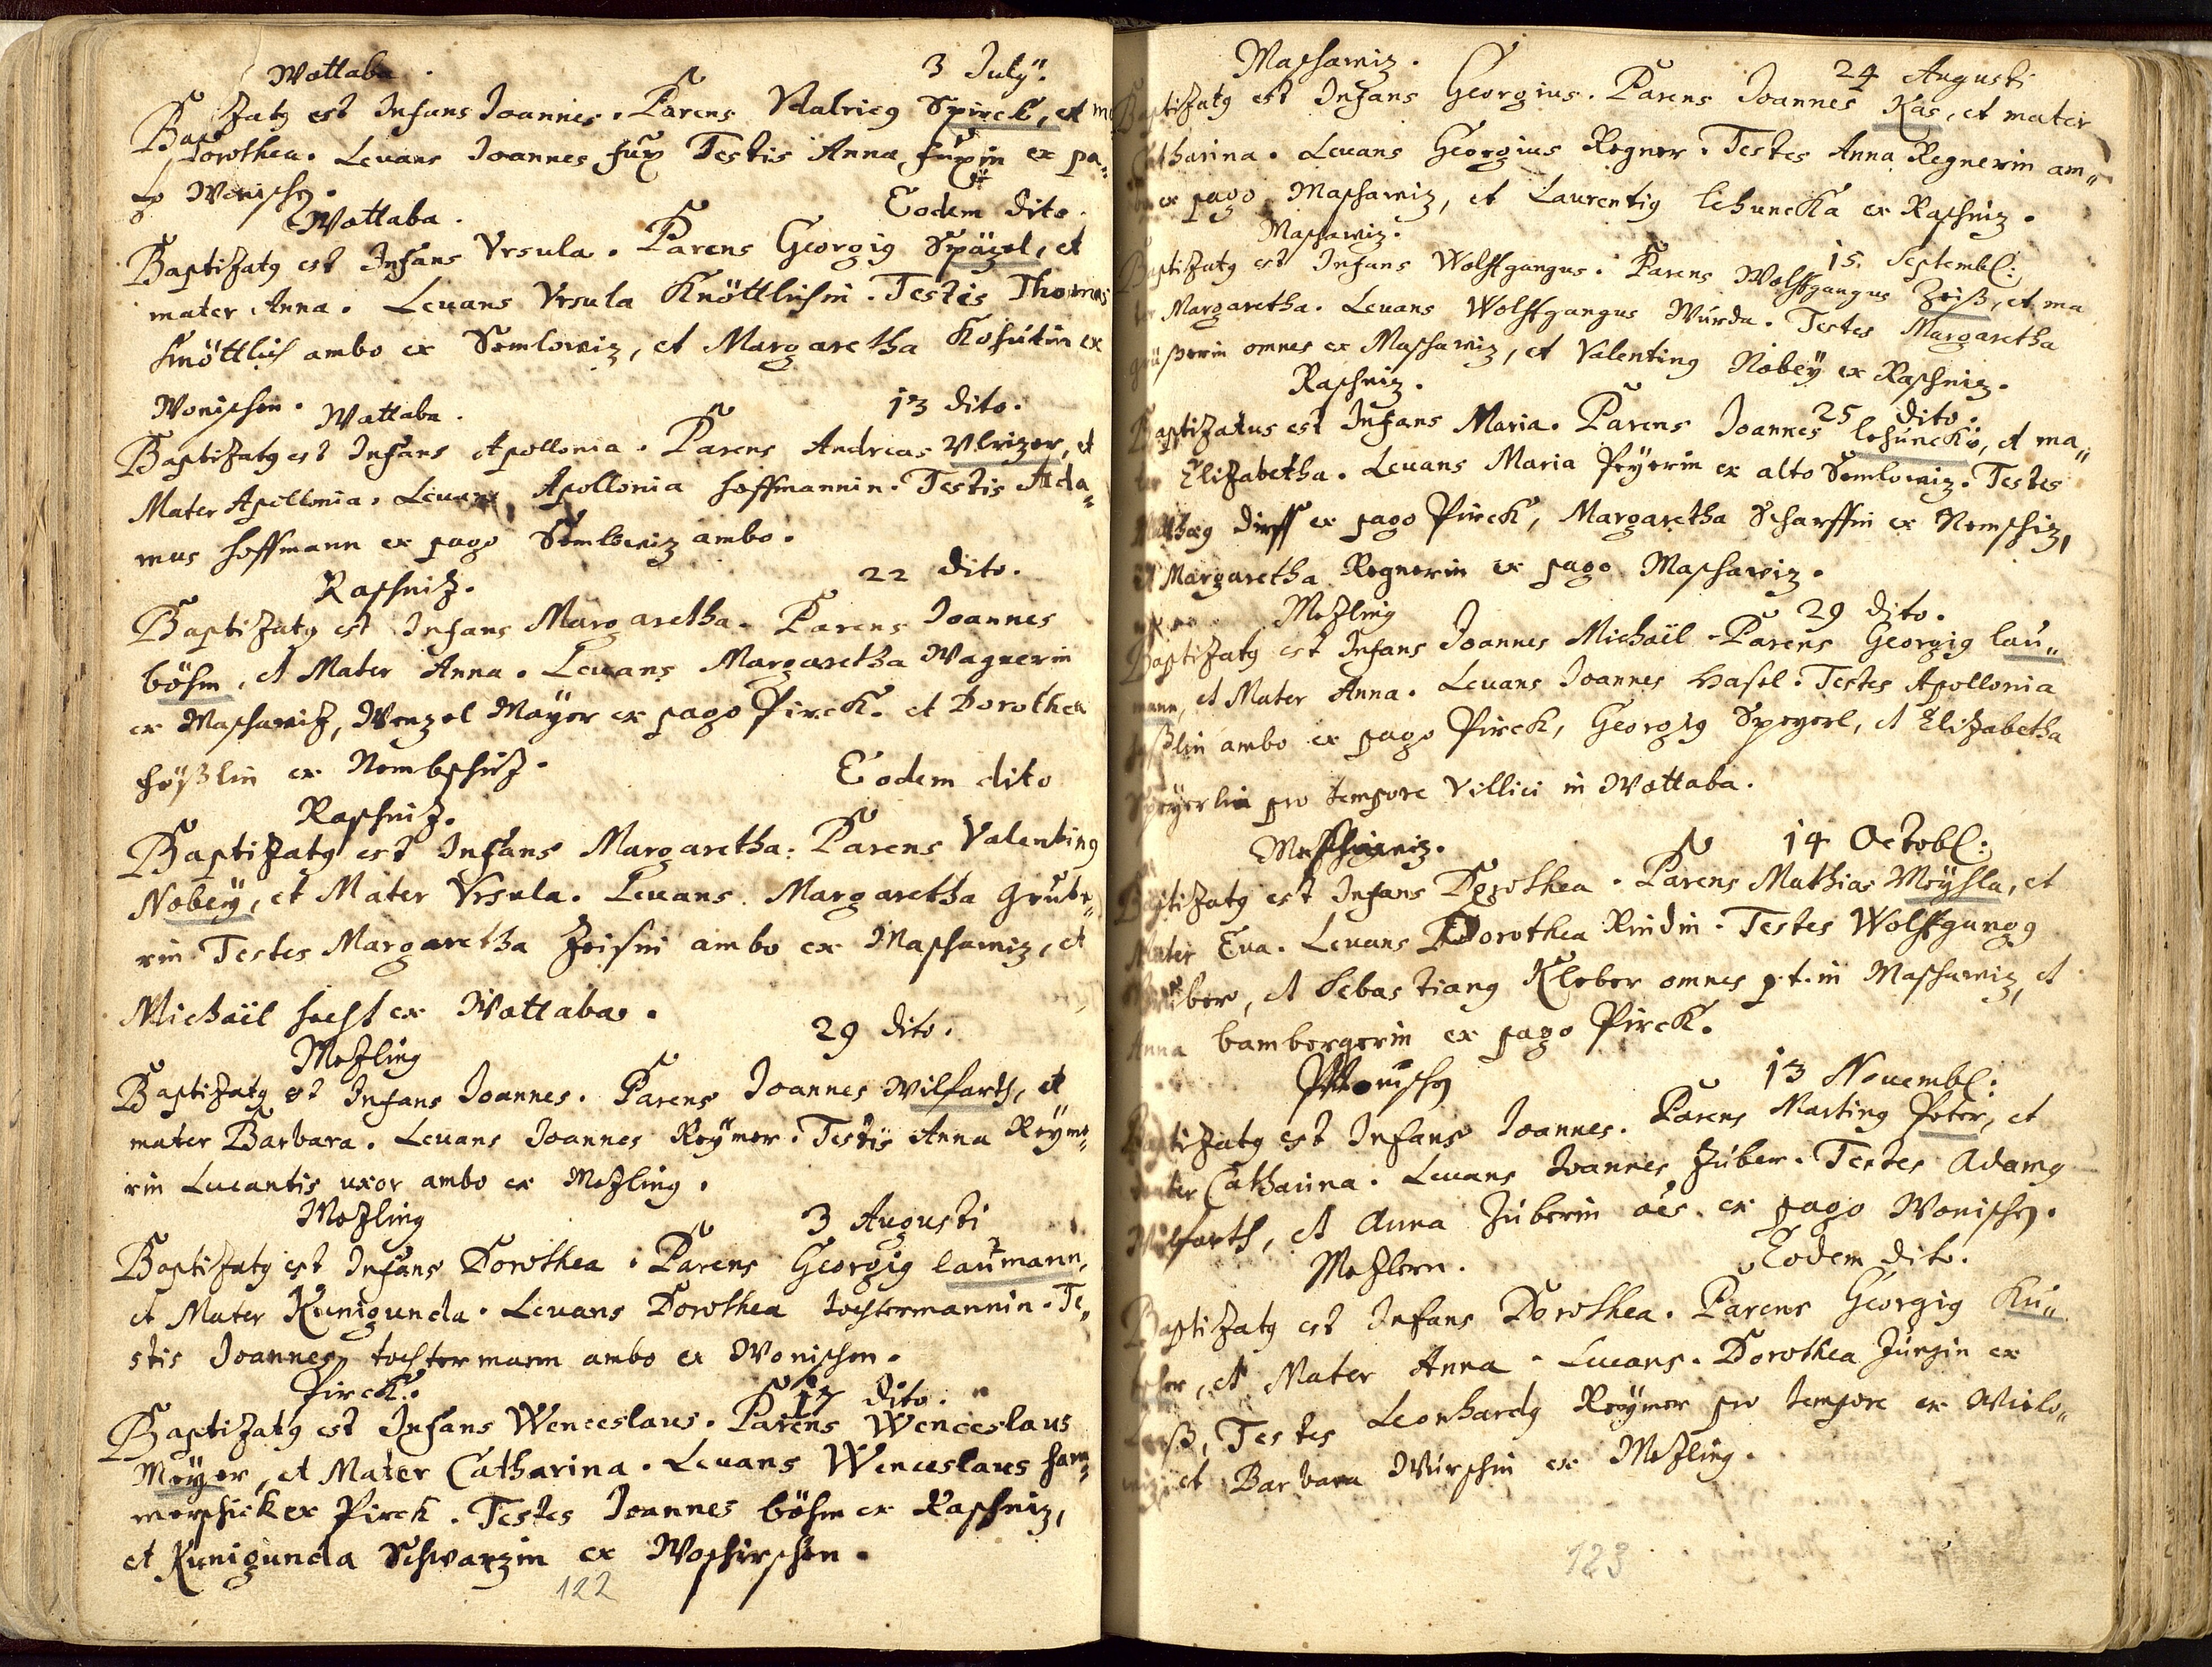 Wottaba. 3 July.
Baptizatg est Infans Joannes. Parens Udalricg Spirck, et m
Dorothea. Levans Joannes fux Testis Anna fuxin ex pa„
go Wonischen.
Wottaba. Eodem dito.
Baptizatg est Infans Vrsula. Parens Georgig Späzel, et
mater Anna. Levans Vrsula Knöttlichin. Testis Thomas
Knöttlich ambo ex Semlowiz, et Margaretha Kohutin ex
Wonischen. Wattaba. 13 dito.
Baptizatg est Infans Apollonia. Parens Andreas Vlrizer, et
Mater Apollonia. Levans Apollonia hoffmannin. Testis Ada„
mus hoffmann ex pago Semlowiz ambo.
Raschniz. 22 dito.
Baptizatg est Infans Margaretha. Parens Joannes
böhm, et Mater Anna. Levans Margaretha Wagnerin
ex Maschawiz, Wenzel Mayer ex pago Pirck. et Dorothea
ex Nembschiz.
Eodem dito
Raschniz.
Baptizatg est Infans Margaretha. Parens Valenting
Nobey, et Mater Vrsula. Levans Margaretha grube„
rin Testes Margaretha Zeisin ambo ex Maschawiz, et
Michäil hecht ex Wottaba.
Mezling 29 dito.
Baptizatg est Infans Joannes. Parens Joannes Wilfarth, et
mater Barbara. Levans Joannes Reymer. Testis Anna Reyme„
rin Levantis uxor ambo ex Mezling.
Mezling 3 Augusti
Baptizatg est Infans Dorothea. Parens Georgig laumann,
et Mater Kunigunda. Levans Dorothea tochtermannin. Te„
stis Joannes tochtermann ambo ex Wonischen.
Pirck. 17 dito.
Baptizatg est Infans Wenceslaus. Parens Wenceslaus
Meyer, et Mater Catharina. Levans Wenceslaus ham„
merschick ex Pirck. Testes Joannes böhm ex Raschniz,
et Kunigunda Schwarzin ex Woschirschen.
122
Maschawiz. 24 Augusti
Baptizatg est Infans Georgius. Parens Joannes Kas, et mater
Catharina. Levans Georgius Regner. Testes Anna Regnerin am„
bo ex pago Maschawiz, et Laurentig lehuncka ex Raschniz.
Maschawiz. 15. Septembl:
Baptizatg est Infans Wolffgangus. Parens Wolffgangus Zeiß, et ma
ter Margaretha. Levans Wolffgangus Wurda. Testes Margaretha
omnes ex Maschawiz, et Valenting Nobey ex Raschniz.
Raschniz. 25 dito.
Baptizatus est Infans Maria. Parens Joannes lehuncko, et ma„
ter Elizabetha. Levans Maria Peyerin ex alto Semlowiz. Testes
ex pago Pirck, Margaretha Scharffin ex Nemschiz,
et Margaretha Regnerin ex pago Maschawiz.
Mezling 29 dito.
Baptizatg est Infans Joannes Michäil. Parens Georgig lau„
mann, et Mater Anna. Levans Joannes hasel. Testes Apollonia
haßlin ambo ex pago Pirck, Georgig Speyerl, et Elizabetha
Speyerlin pro tempore Villici in Wottaba.
Maschawiz. 14 Octobl:
Baptizatg est Infans Dorothea. Parens Mathias Meyhla, et
Mater Eva. Levans Dorothea Rindin. Testes Wolffgangg
, et Sebastiang Kleber omnes p. t. in Maschawiz, et
Anna bambergerin ex pago Pirck.
Wonischen 13 Novembl:
Baptizatg est Infans Joannes. Parens Marting Peter, et
mater Catharina. Levans Joannes Zuber. Testes Adamg
Wilfarth, et Anna Zuberin oēs. ex pago Wonischen.
Mezlern. Eodem dito.
Baptizatg est Infans Dorothea. Parens Georgig Ku„
, et Mater Anna. Levans. Dorothea Jungin ex
Testes Leonhardg Reymer pro tempore ex
et Barbara Wurschin ex Mezling.
123